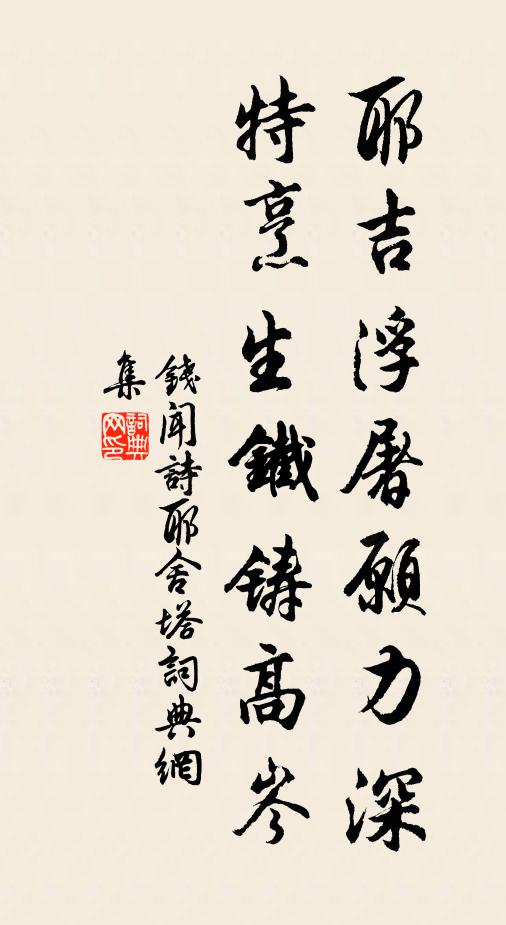 耶吉浮屠願力深
特烹生鐵鑄高岑
錢聞詩耶舍塔詞典網
集
詞典
网印